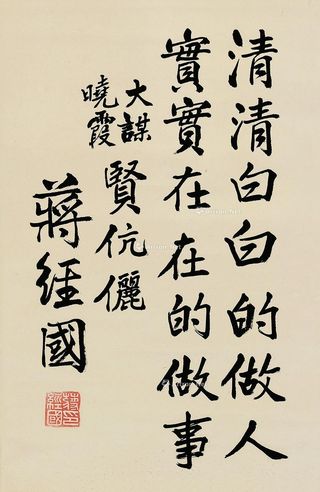 清清白白的做人
實實在在的做事
大謀
曉霞
賢伉儷
蔣經國
蔣經國印